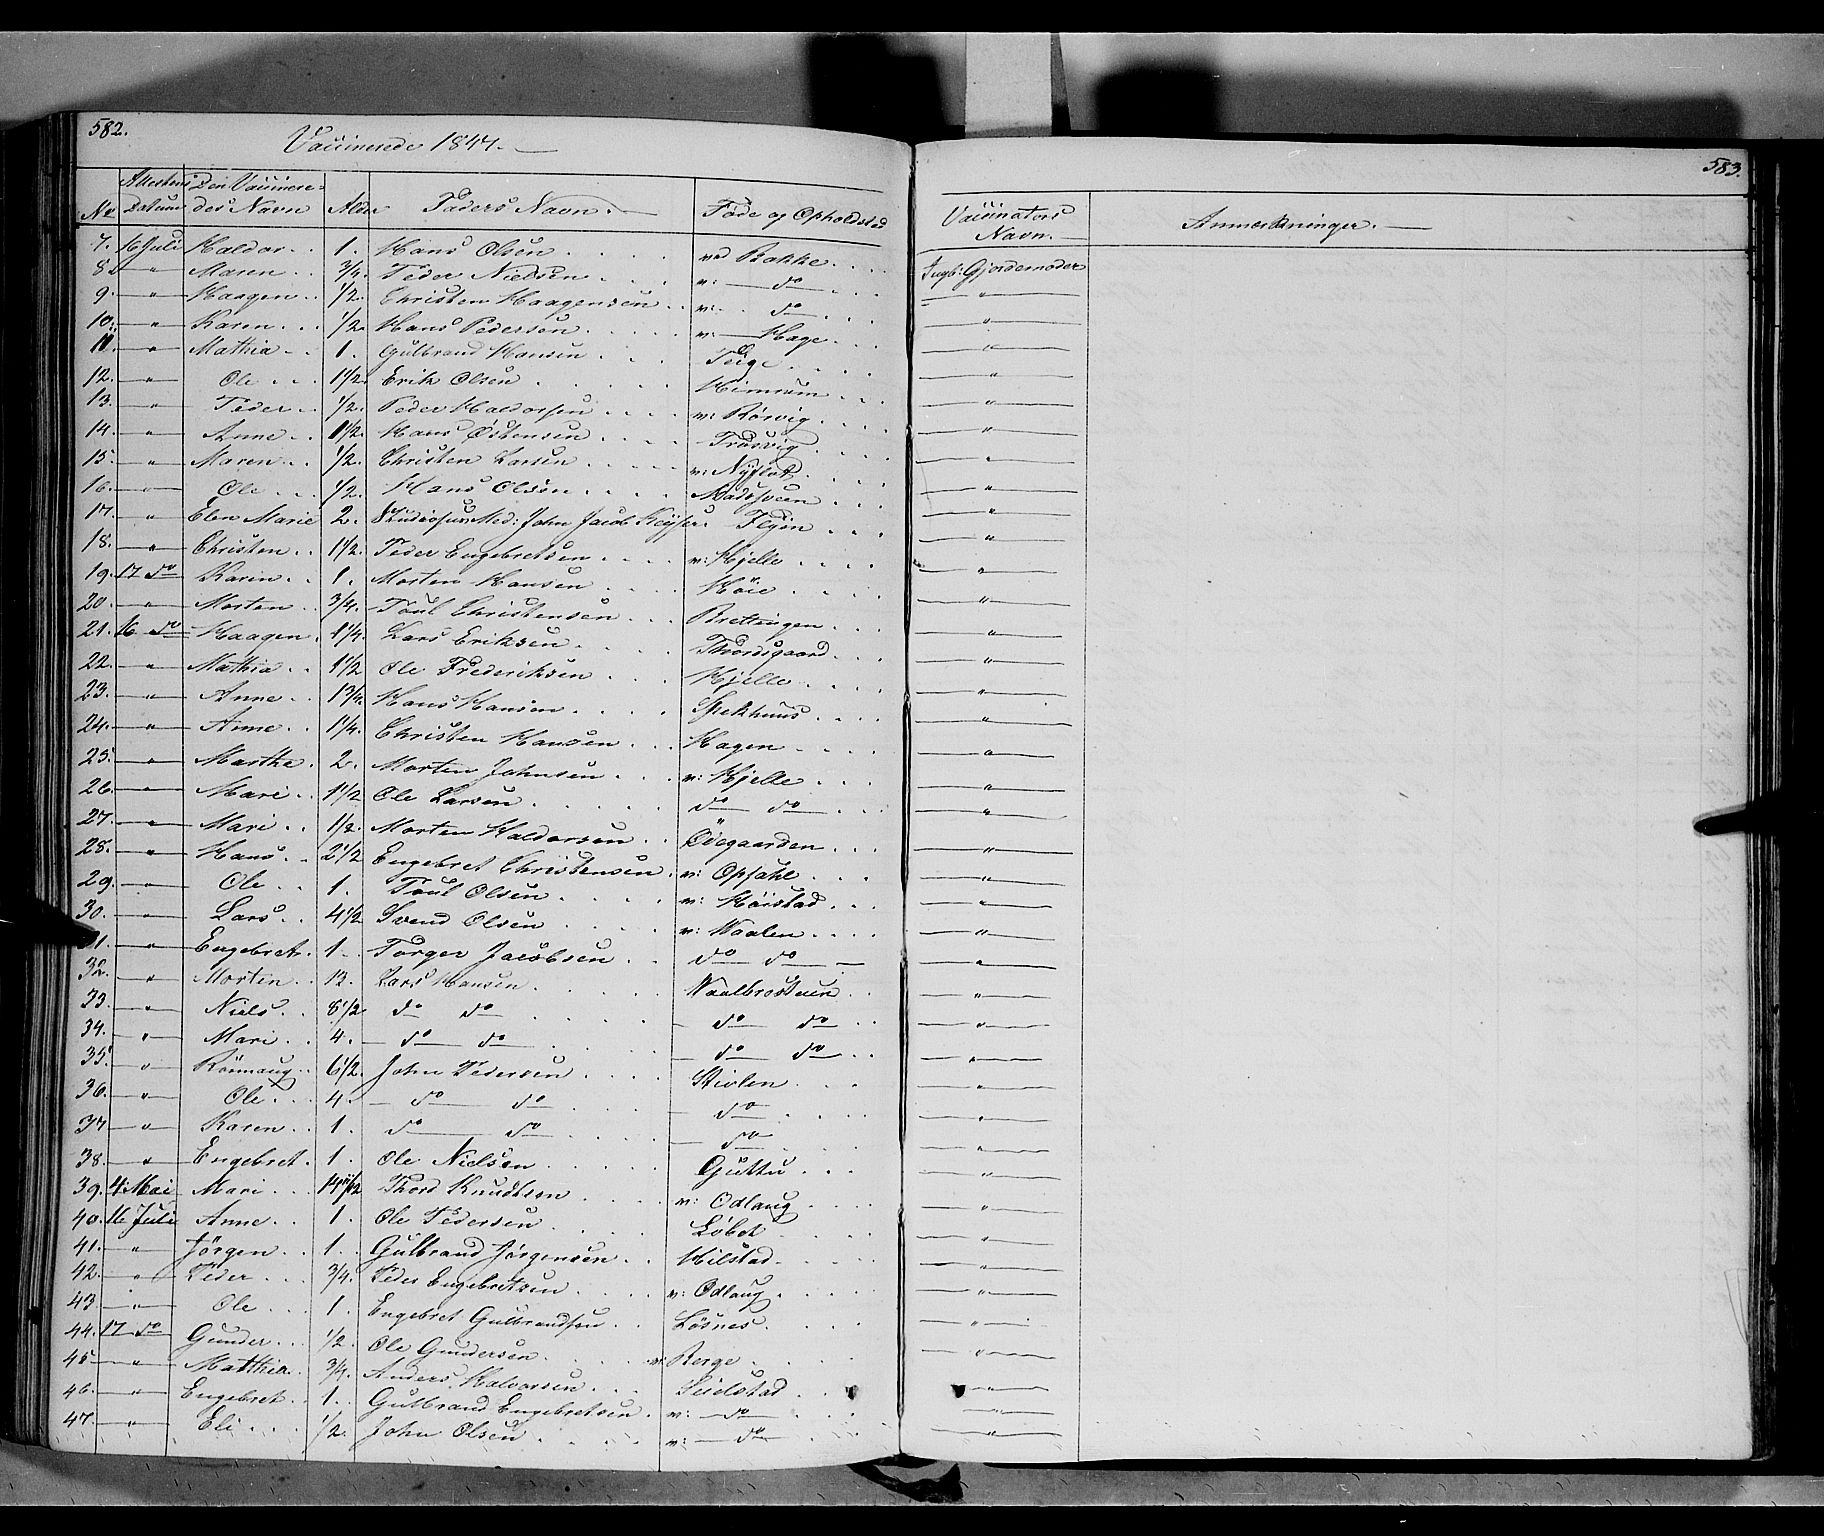 582.
Vaccinerede 1844.
583.
No Attestens Datum Den Vaccineredes Navn Alder Faders Navn. Føde og Opholdsted Vaccinators Navn. Anmærkninger.
7. 16 Juli Haldor 1. Hans Olsen ved Bakke Ingb: Gjordemoder
8. " Maren 3/4. Peder Nielsen v: do "
9. " Haagen 1/2. Christen Haagensen v: do "
10. " Karen 1/2. Hans Pedersen v: Hage "
11. " Mathia 1. Gulbrand Hansen Teige "
12. " Ole 1 1/2. Erik Olsen Himrum "
13. " Peder 1/2. Peder Haldorsen v: Rörvig "
14. " Anne 1 1/2. Hans Östensen Trosvig "
15. " Maren 1/2. Christen Larsen v: Nyflot "
16. " Ole 1/2. Hans Olsen Madssveen "
17. " Elen Marie 2. Studiosus Med: John Jacob Keyser "
18. " Christen 1 1/2. Peder Engebretsen v: Hjelle "
19. 17 do Karin 1. Morten Hansen Höie "
20. " Morten 3/4. Poul Christensen Brettingen "
21. 16 do Haagen 1 1/4. Lars Eriksen Thordsgaard "
22. " Mathia 1 1/2 Ole Frederiksen Hjelle "
23. " Anne 1 3/4. Hans Hansen Spekhuus "
24. " Anne 1 1/4. Christen Hansen Hagen "
25. " Marthe 2. Morten Johnsen v: Hjelle "
26. " Mari 1 1/2 Ole Larsen do do "
27. " Mari 1/2. Morten Haldorsen Ödegaarden "
28. " Hans 2 1/2 Engebret Christensen v: Opsahl "
29. " Ole 1. Poul Olsen v: Höistad "
30. " Lars 4 1/2 Svend Olsen v: Waalen "
31. " Engebret 1. Torger Jacobsen do do "
32. " Morten 12. Lars Hansen "
33. " Niels 8 1/2 do do do do "
34. " Mari 4. do do do do "
35. " Rönnaug 6 1/2 John Pedersen Stivlen "
36. " Ole 4. do do do "
37 " Karen 1. do do do "
38. " Engebret 1. Ole Nielsen Guttu "
39. 4 Mai Mari Thord Knudtsen v: Odlaug "
40. 16 Juli Anne 1. Ole Pedersen Löbet "
41. " Jörgen 1. Gulbrand Jörgensen Hilstad "
42. " Peder 3/4. Peder Engebretsen v: Odlaug "
43 " Ole 1. Engebret Gulbrandsen Lösnes "
44. 17 do Gunder 1/2 Ole Gundersen v: Berge "
45 " Matthia 3/4. Anders Halvorsen Sielstad "
46. " Engebret 1. Gulbrand Engebretsen v: do "
47. " Eli 1/2. John Olsen v: do "